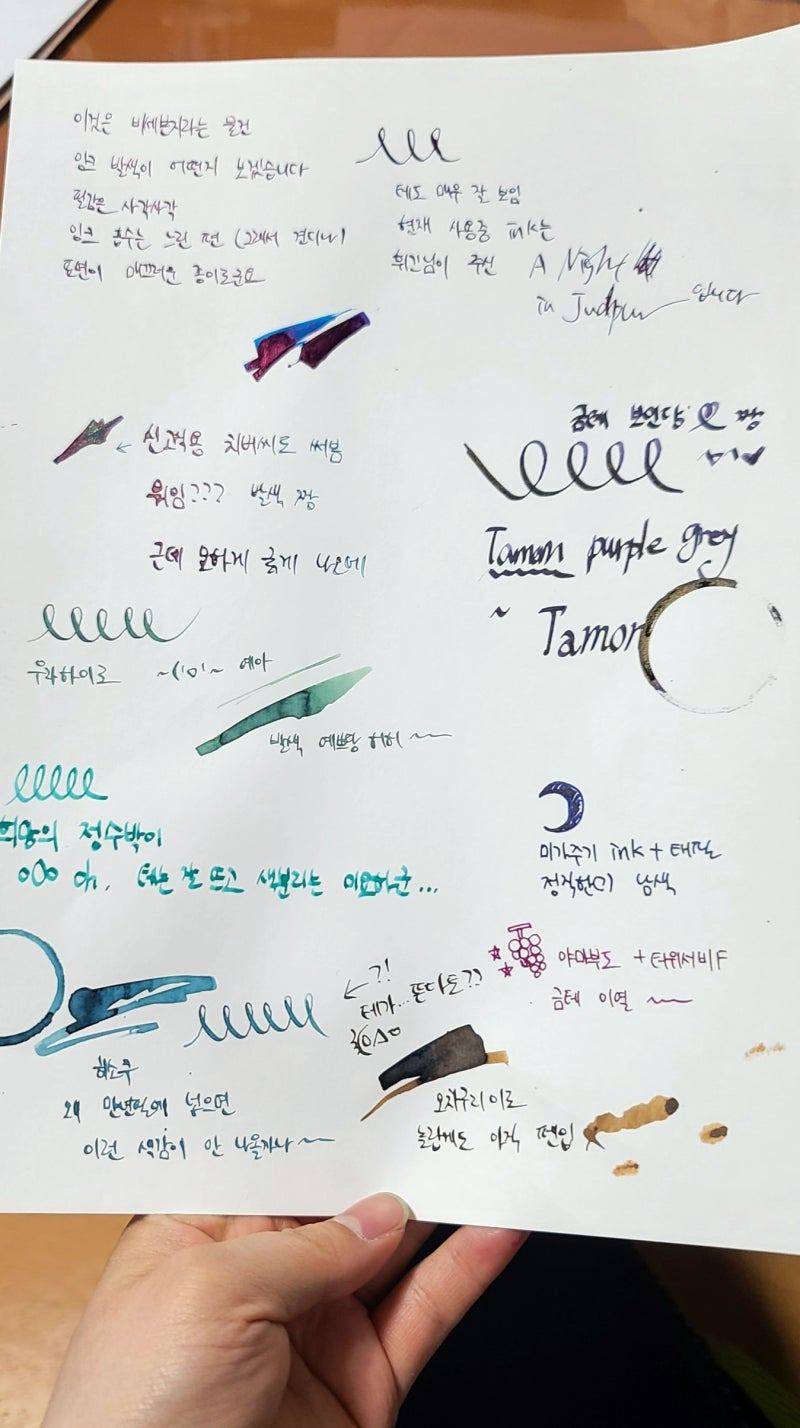 이것은 비세븐지라는 물건
잉크 발색이 어떤지 보겠습니다
필감은 사각사각
잉크 흡수는 느린 편 (그래서 견디나)
표면이 매끄러운 종이로군요
테도 매우 잘 보임
현재 사용중 ink는
휘긴님이 주신 A Night
in Jodhpur 입니다
← 신교식용 치버씨도 써봄
뭐임??? 발색 짱
근데 모하게 굵게 나오네
금테 보인당 짱
Tamon purple grey
~ Tamon
우라하이로 ~('ㅇ'~ 예아
발색 예쁘당 허허 ~
희망의 정수박이
oOo 아, 테는 잘 뜨고 색분리는 미묘하군...
미가주기 ink + 태필
정직한(?) 남색
야마부도 + 타위서비F
금테 이열 ~
←?!
테가... 뜬다도??
하소쿠
왜 만년필에 넣으면
이런 색감이 안 나올까나 ~
오치구리이로
놀랍게도 아직 펜입